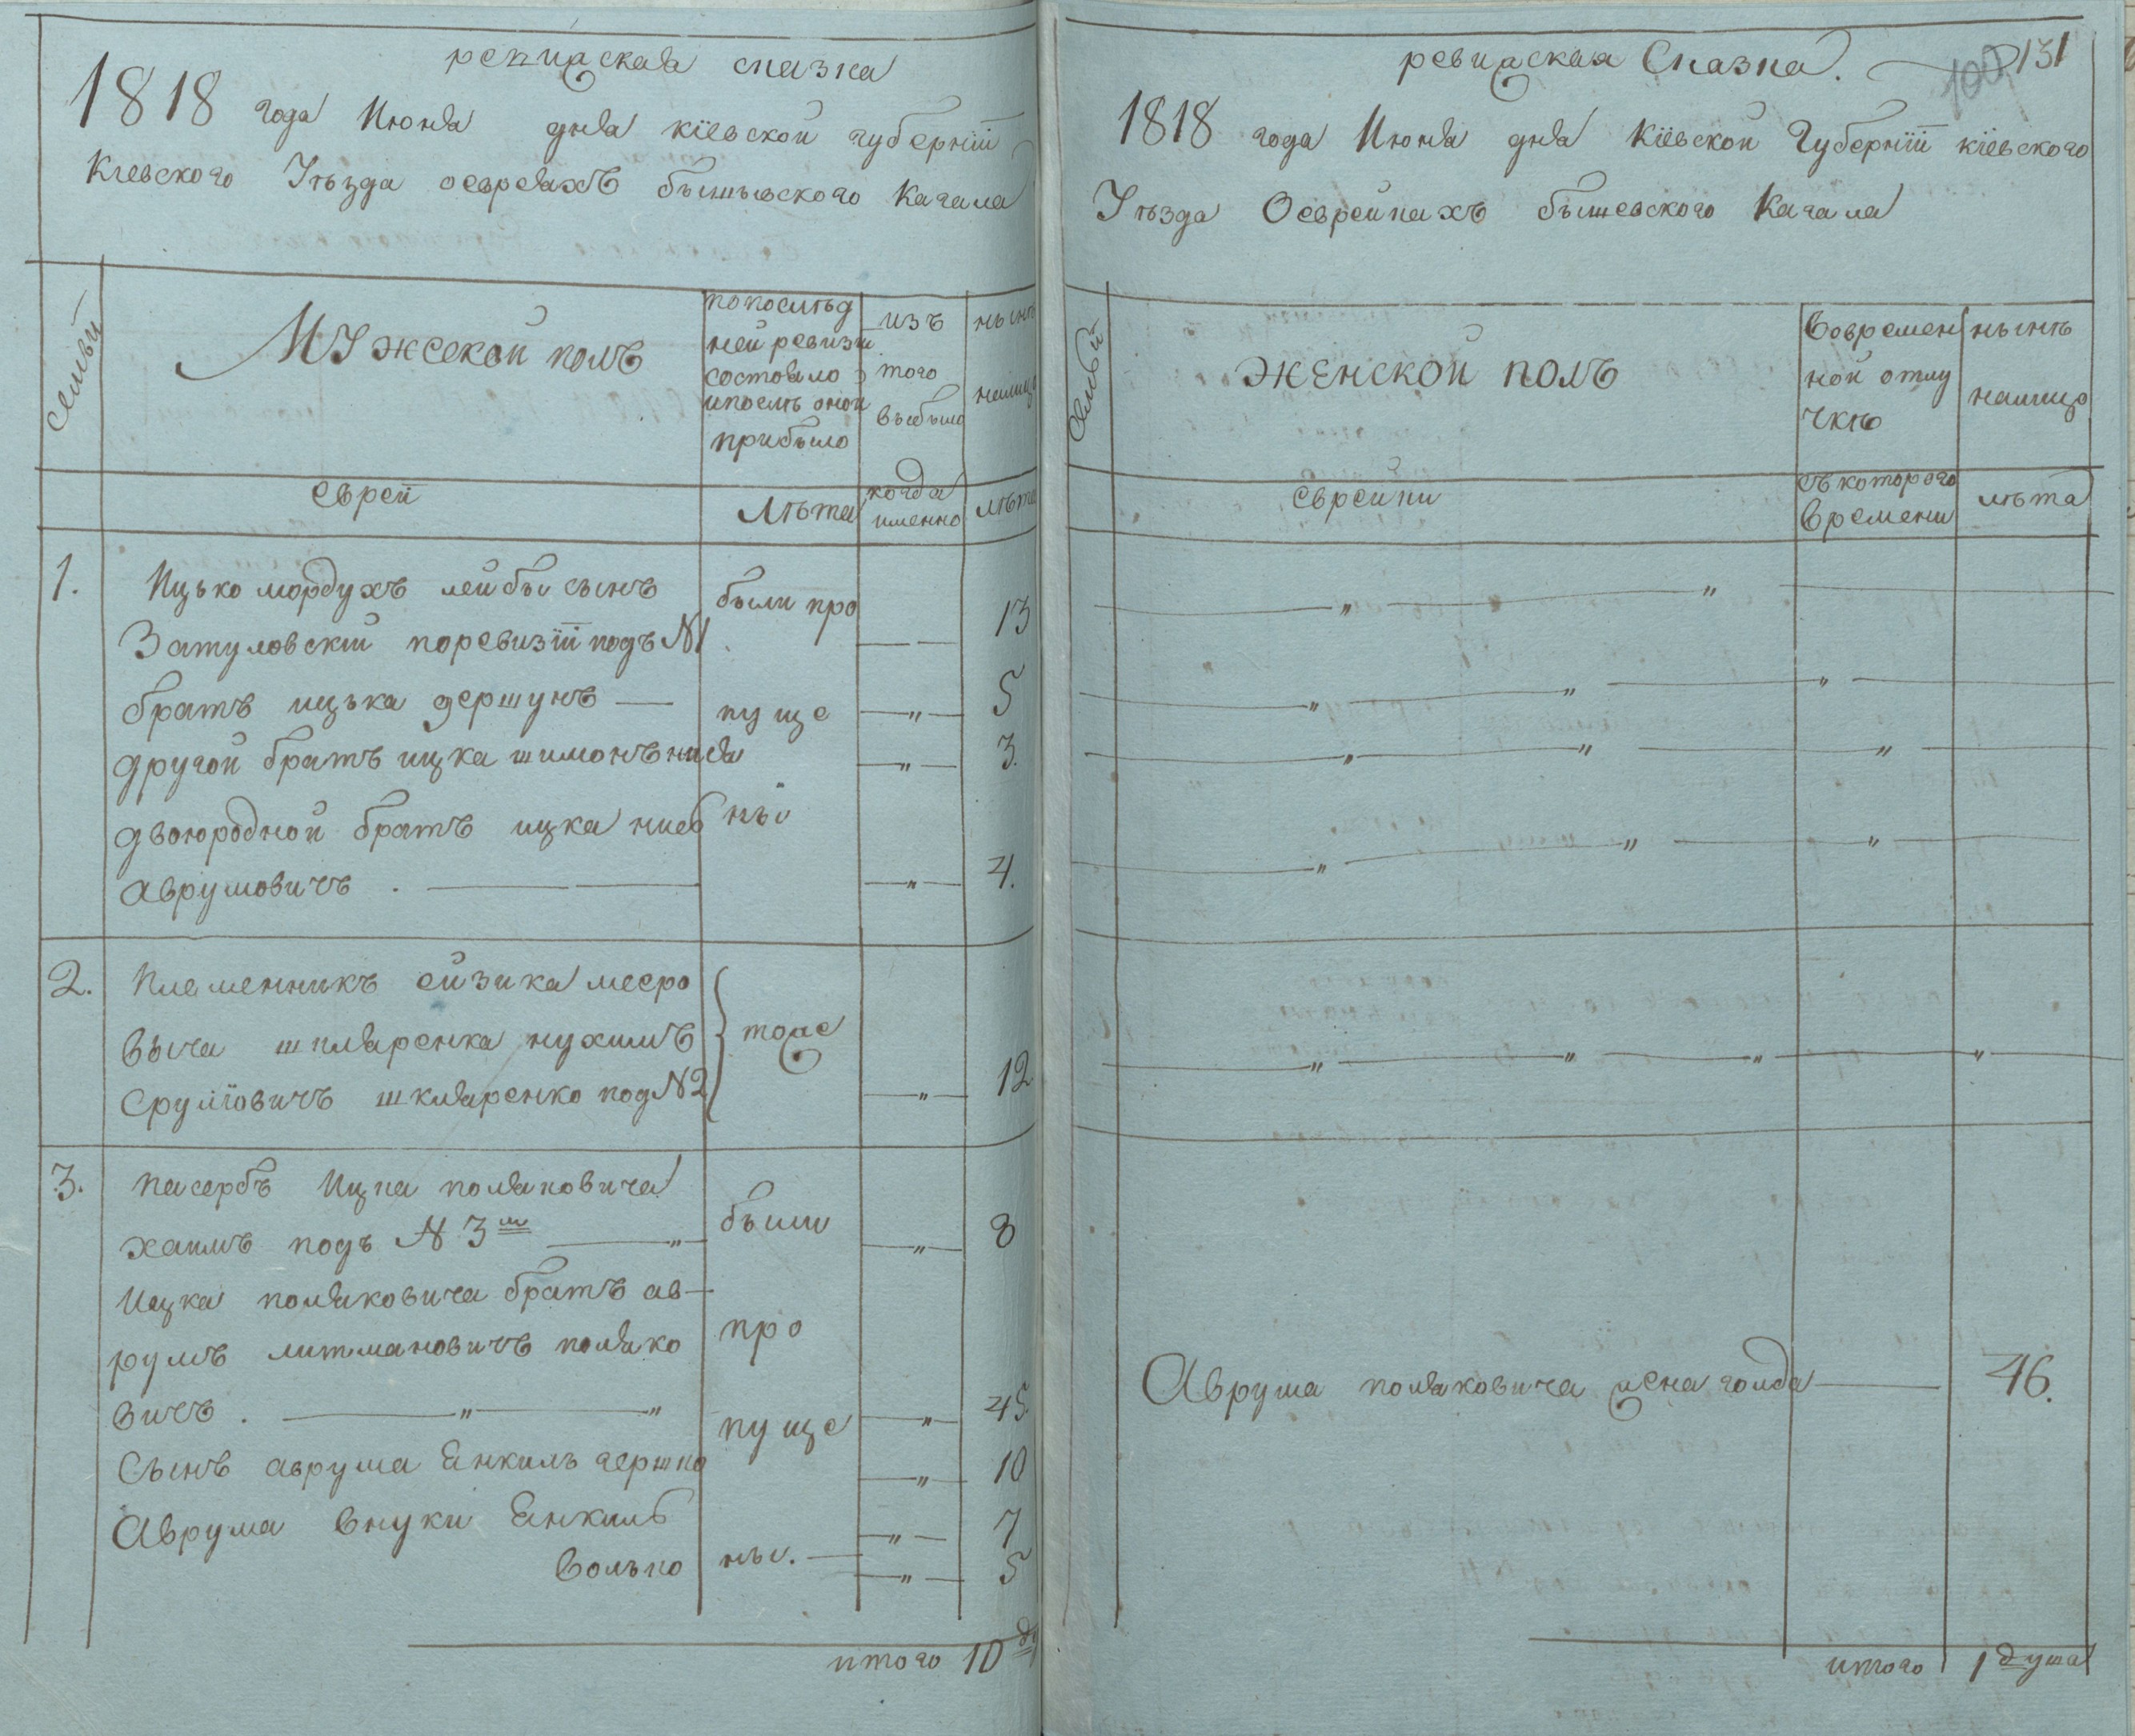 ревизская сказка
1818 года Июня дня кіевской губерніи
Кіевского Уѣзда оевреяхъ бышевского Кагала
Семьи
МУжеской полъ
попослѣд
ней ревизіи
состояло
ипослѣ оной
прибыло
изъ
того
выбыло
нынѣ
налицо
еврей
Лѣта
когда
именно
лѣта
1.
Ицько мордухъ лейбы сынъ
были про
13
Затуловскій поревизіи подъ N1
братъ ицька гершунъ
пуще
5
другой братъ ицка шимонъ
3.
двоюродной братъ ицка
ны
аврумовичъ.
4.
2.
Племенникъ ейзика мееро
выча шкляренка нухимъ
тоже
Срулiовичъ шкляренко под N2
12
3.
пасербъ Ицка поляковича
были
хаимъ подъ N 3м
8
Ицка поляковича братъ ав
румъ литмановичъ поляко
про
вичъ.
пуще
45.
Сынъ аврума Енкиль гершко
10
Аврума внуки Енкиль
7
волько
ны.
5
итого 10 ду
ревизская Сказка.
100
131
1818 года Июня дня Кіевской Губерніи кіевского
Уѣзда Оеврейкахъ бышевского Кагала
Семьи
ЖЕнской полъ
вовремен
ной отлу
чкѣ
нынѣ
налицо
еврейки
съкоторого
времени
лѣта
Аврума поляковича жена голда
46.
итого 1 душа